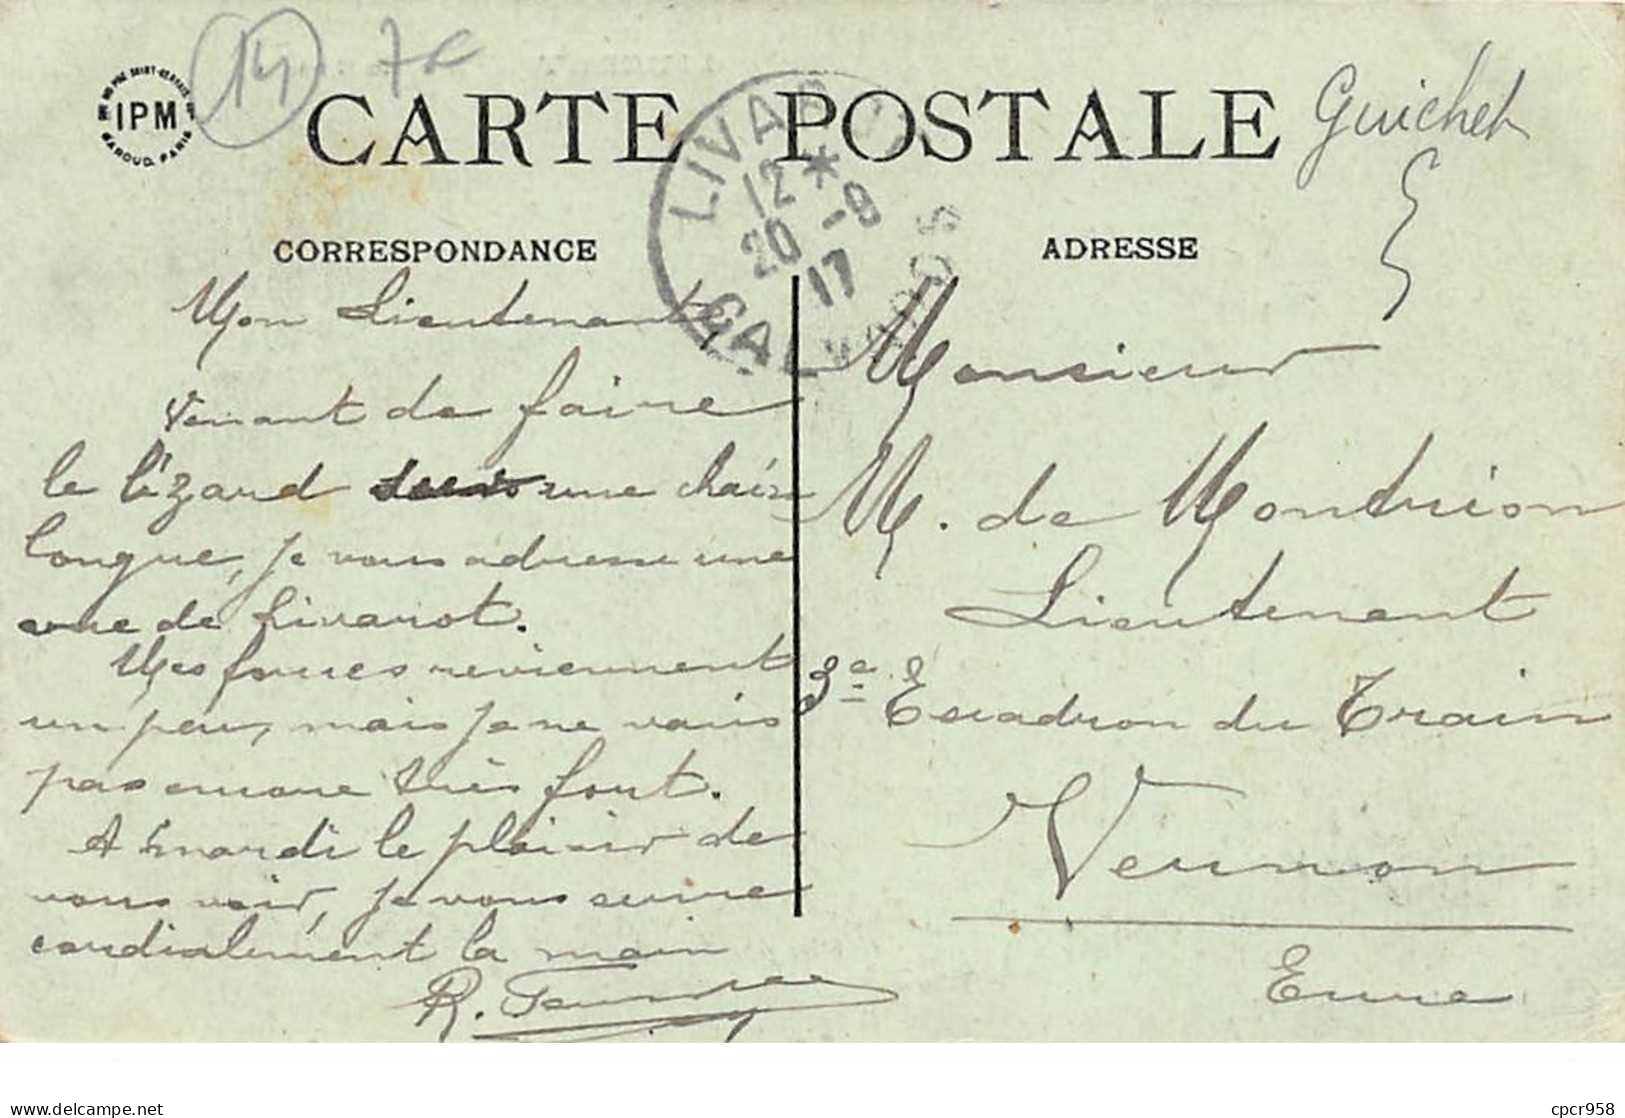 14 7€
IPM
CARTE POSTALE
Guichet
LIVAROT
12 *
20 -9
17
CALVADOS
CORRESPONDANCE
ADRESSE
Mon Lieutenant,
Venant de faire
le lézard une chaise
longue, je vous adresse une
vue de Livarot.
Mes forces reviennent
un peu, mais je ne vais
pas encore très fort.
A mardi le plaisir de
vous voir, je vous serre
cordialement la main
R.
Monsieur
M. de Montrion
Lieutenant
3e Escadron du Train
Vernon
Eure
delcampe.net
cpcr958